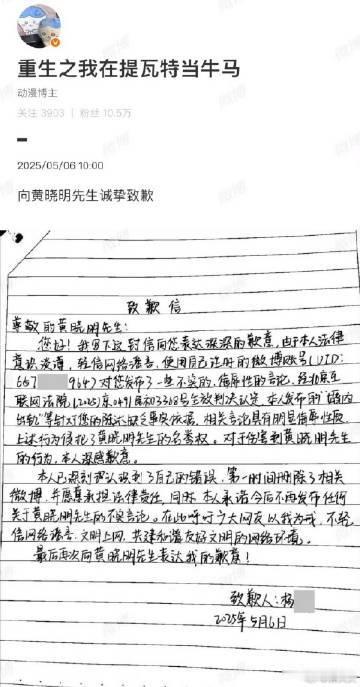 重生之我在提瓦特当牛马
动漫博主
关注 3903 | 粉丝 10.5万
2025/05/06 10:00
向黄晓明先生诚挚致歉
致歉信
尊敬的黄晓明先生:
您好!我写下这封信向您表达深深的歉意,由于本人法律
意识淡薄,轻信网络谣言,使用自己注册的微博账号(UID:
667 964)对您发布了一些不实的、侮辱性的言论,经北京互
联网法院(2025)京0491民初3368号生效判决认定,本人发布的“婚内
出轨”等针对您的陈述缺乏事实依据,相关言论具有明显侮辱性质
上述行为侵犯了黄晓明先生的名誉权。对于伤害到黄晓明先生
的行为,本人深感歉意。
本人已深刻意识到了自己的错误,第一时间删除了相关
微博,并愿意承担法律责任,同时,本人承诺今后不再发布任何
关于黄晓明先生的不实言论。在此呼吁广大网友以我为戒,不轻
信网络谣言,文明上网,共建和谐友好文明的网络环境。
最后再次向黄晓明先生表达我的歉意!
致歉人:杨
2025年5月6日